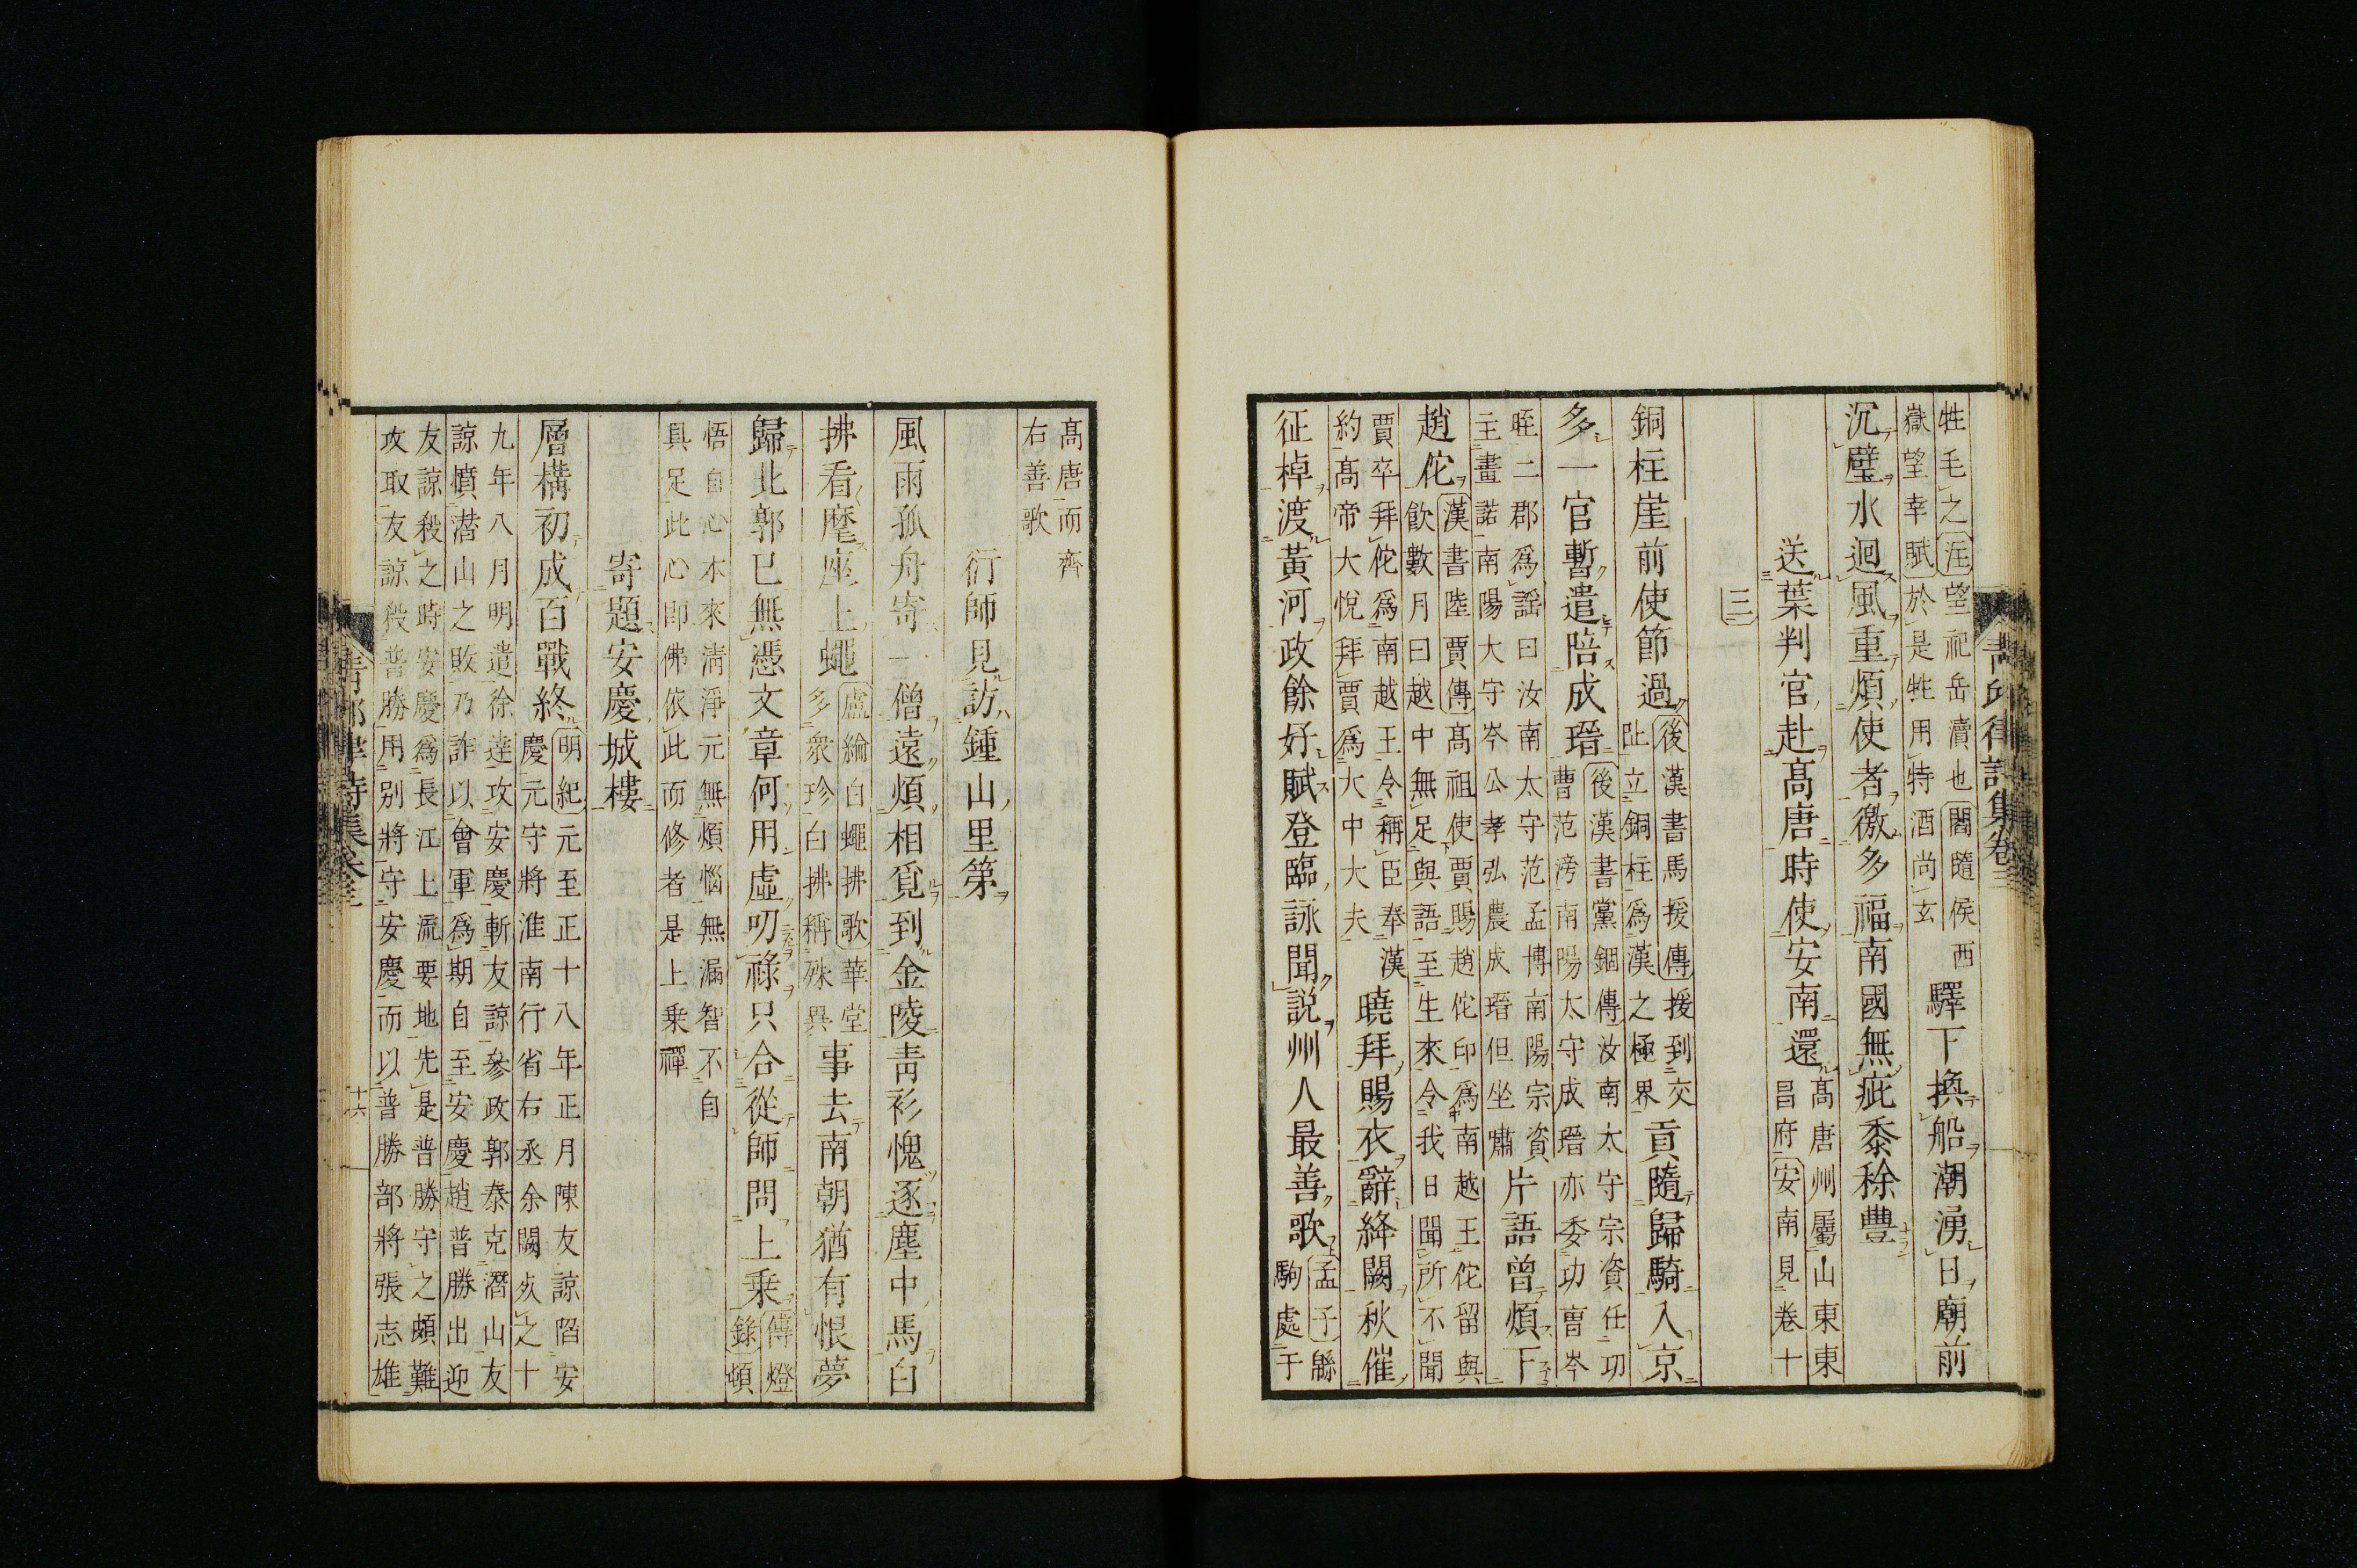 牲毛之注望祀岳瀆也閻隨侯西
嶽望幸賦於是牲用特酒尚玄
驛下換船潮湧日廟前
沉璧水迴風重煩使者徼多福南國無疵黍稌豐
送葉判官赴高唐時使安南還
高唐州屬山東東
昌府安南見卷十
三
銅柱崖前使節過
後漢書馬援傳援到交
阯立銅柱爲漢之極界
貢隨歸騎入京
多一官暫遣陪成瑨
後漢書黨錮傳汝南太守宗資任功
曹范滂南陽太守成瑨亦委功曹岑
晊二郡爲謠曰汝南太守范孟博南陽宗資
主畫諾南陽大守岑公孝弘農成瑨但坐嘯
片語曾煩下
趙佗
漢書陸賈傳高祖使賈賜趙佗印爲南越王佗留與
飲數月曰越中無足與語至生來令我日聞所不聞
賈卒拜佗爲南越王令稱臣奉漢
約高帝大悅拜賈爲大中大夫
曉拜賜衣辭絳闕秋催
征棹渡黃河政餘好賦登臨詠聞説州人最善歌
孟子緜
駒處于
高唐而齊
右善歌
衍師見訪鍾山里第
風雨孤舟寄一僧遠煩相覓到金陵靑衫愧逐塵中馬白
拂看麾座上蠅
盧綸白蠅拂歌華堂
多衆珍白拂稱殊異
事去南朝猶有恨夢
歸北郭已無憑文章何用虛叨祿只合從師問上乗
傳燈
錄頓
悟自心本來淸淨元無煩惱無漏智不自
具足此心卽佛依此而修者是上乗禪
寄題安慶城樓
層構初成百戰終
明紀元至正十八年正月陳友諒陷安
慶元守將淮南行省右丞余闕死之十
九年八月明遣徐達攻安慶斬友諒參政郭泰克潛山友
諒憤潛山之敗乃詐以會軍爲期自至安慶趙普勝出迎
友諒殺之時安慶爲長江上流要地先是普勝守之頗難
攻取友諒殺普勝用別將守安慶而以普勝部將張志雄
十六